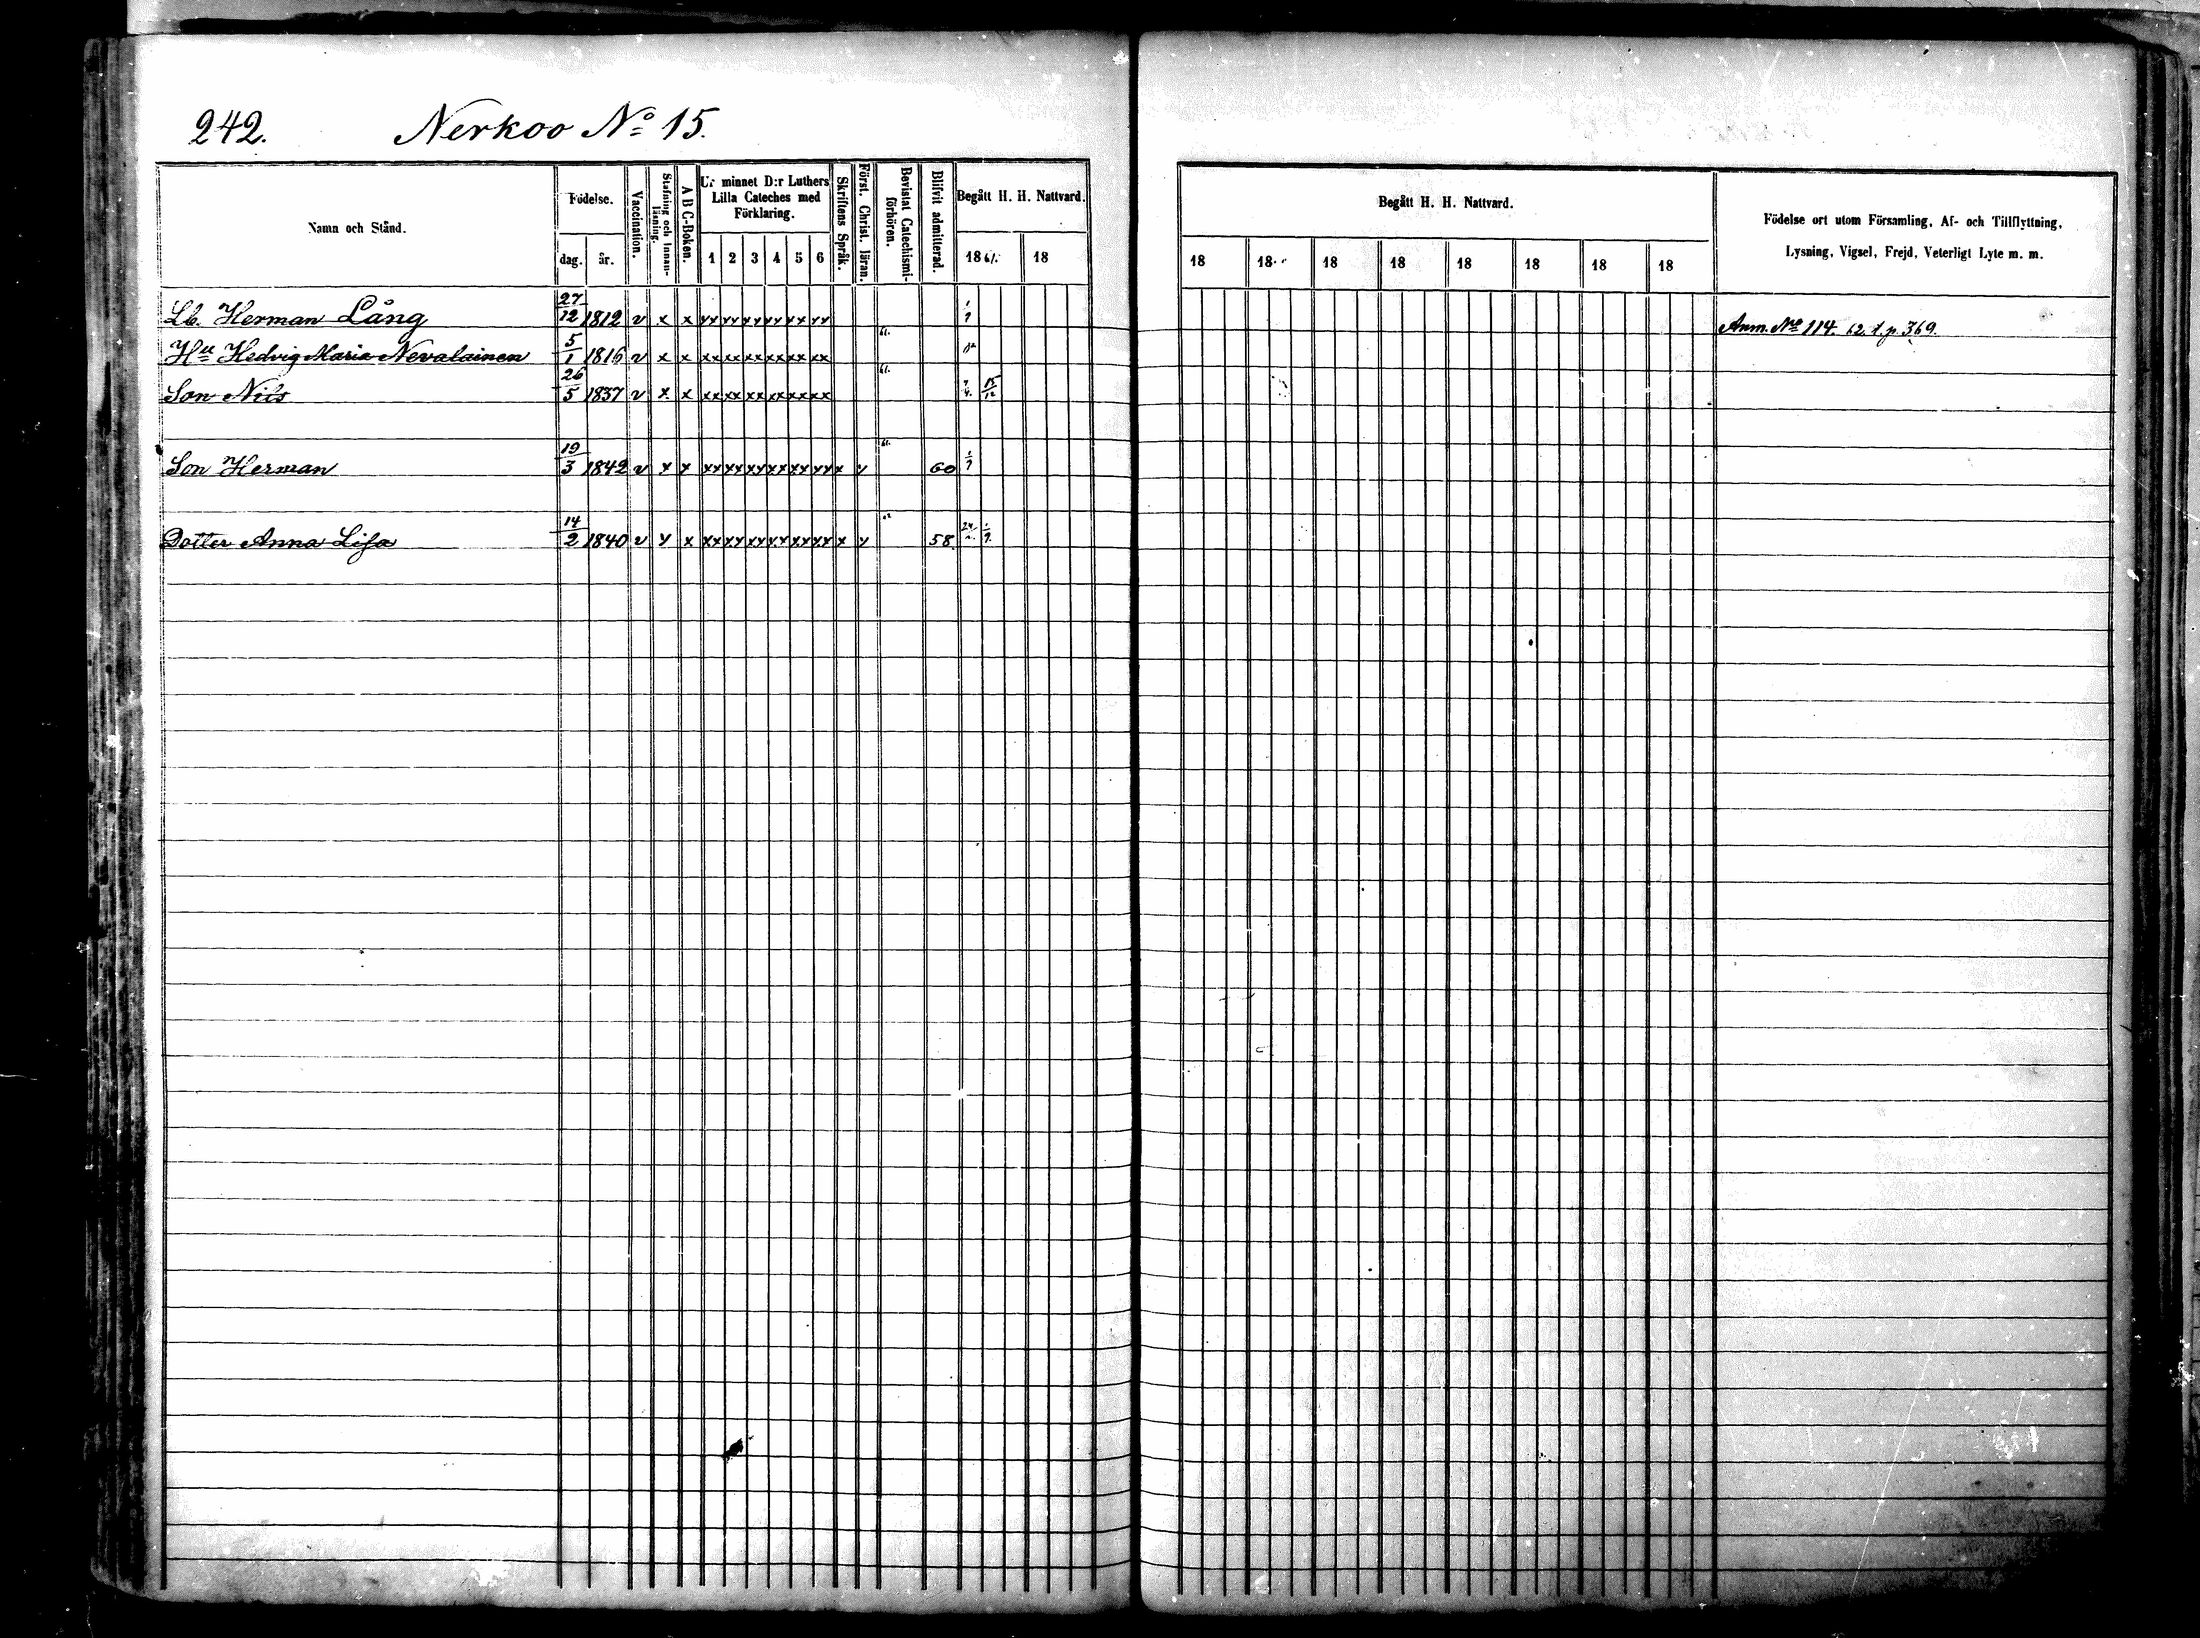 242. Nerkoo No 15.
Namn och Stånd.
Födelse.
dag. år.
Vaccination.
Stafning och Innanläsning.
A B C-Boken.
Ur minnet D:r Luthers
Lilla Cateches med
Förklaring.
1 2 3 4 5 6
Skriftens Språk.
Först. Christ. läran.
Bevistat Catechismi-
förhören.
Blifvit admitterad.
Begått H. H. Nattvard.
1861. 18
Begått H. H. Nattvard.
18 18 18 18 18 18 18 18
Födelse ort utom Församling, Af- och Tillflyttning,
Lysning, Vigsel, Frejd, Veterligt Lyte m. m.
Lb. Herman Lång 27/12 1812 v x x xx xx xx xx xx xx Anm. No 114. 62. t. p. 369.
Hu Hedvig Maria Nevalainen 5/1 1816 v x x xx xx xx xx xx xx 61.
Son Nils 26/5 1837 v x x xx xx xx xx xx xx 61. 15/12
Son Herman 19/3 1842 v x x xx xx xx xx xx xx x v 61. 60
Dotter Anna Lisa 14/2 1840 v x x xx xx xx xx xx xx x v 58.